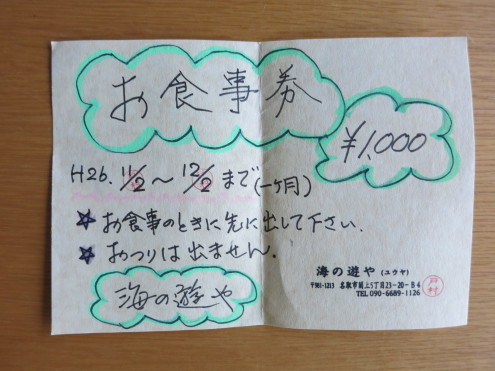 お食事券
¥1,000
H26. 11/2 ～ 12/2 まで(一ヶ月)
★ お食事のときに先に出して下さい.
★ おつりは出ません.
海の遊や
海の遊や (ユウヤ)
〒981-1213 名取市
5丁目23-20-B4
TEL 090-6689-1126
戸村